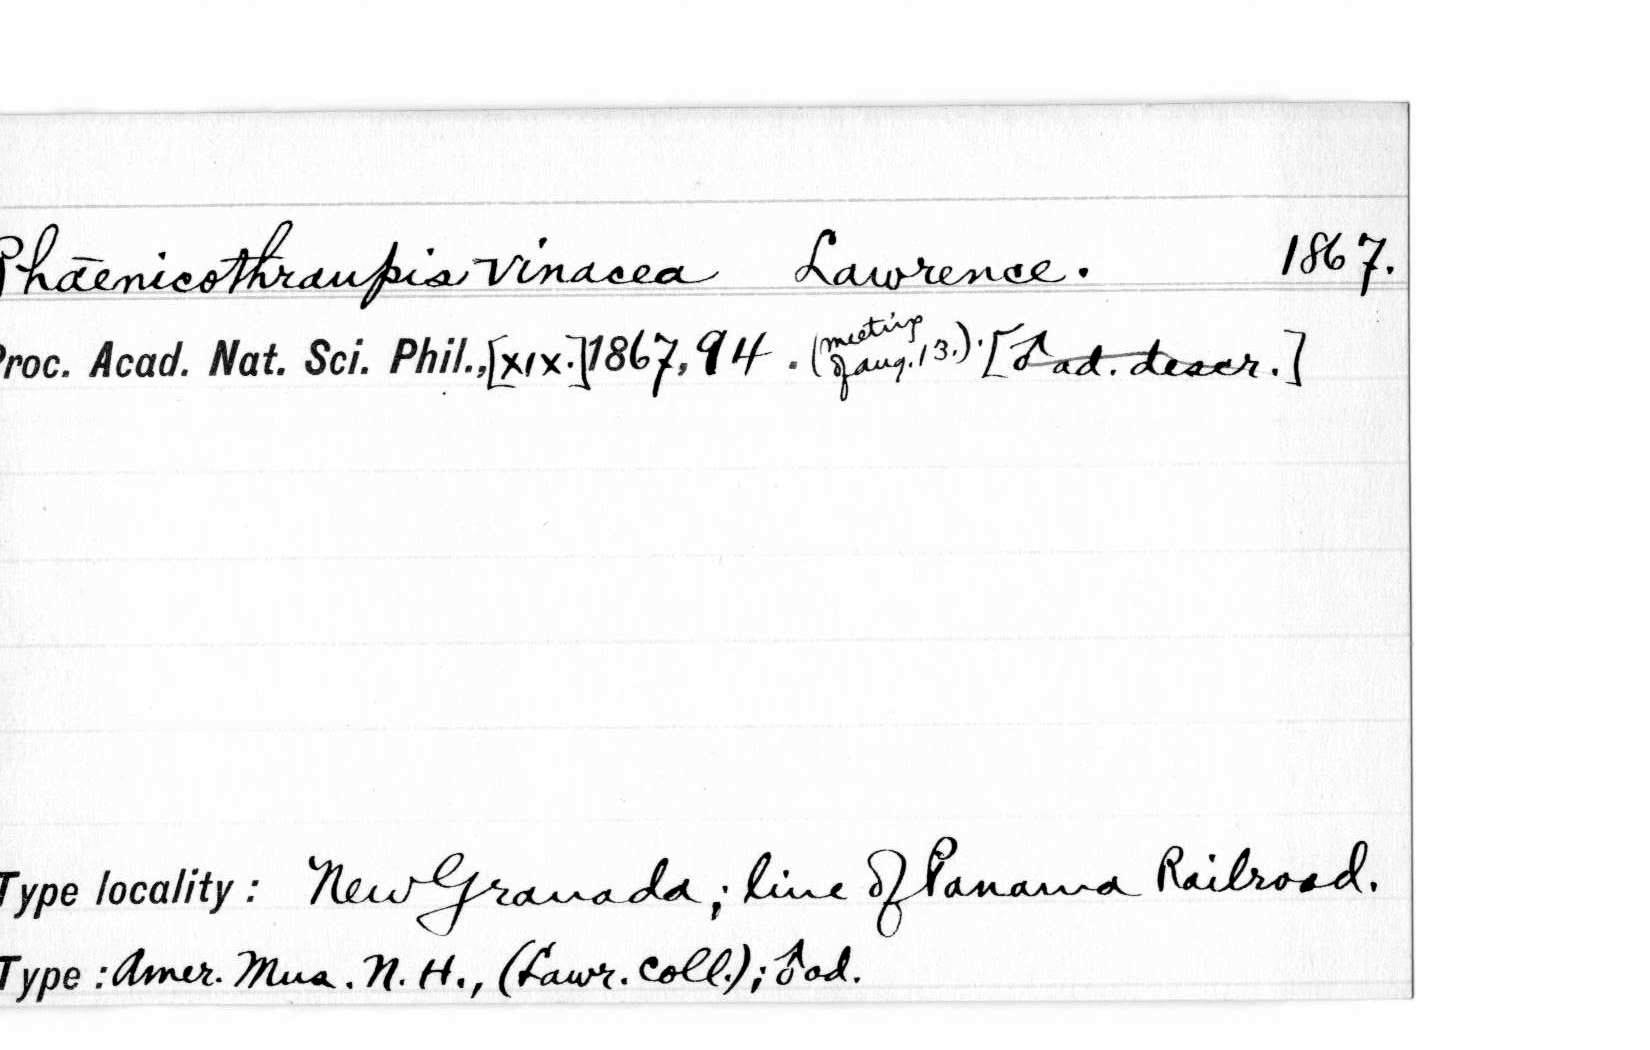 Phœnicothraupis vinacea Lawrence. 1867.
Proc. Acad. Nat. Sci. Phil., [XIX.] 1867, 94. (meeting of Aug. 13.). [♂ ad. descr.]
Type locality: New Granada; line of Panama Railroad.
Type: Amer. Mus. N. H., (Lawr. Coll.); ♂ ad.